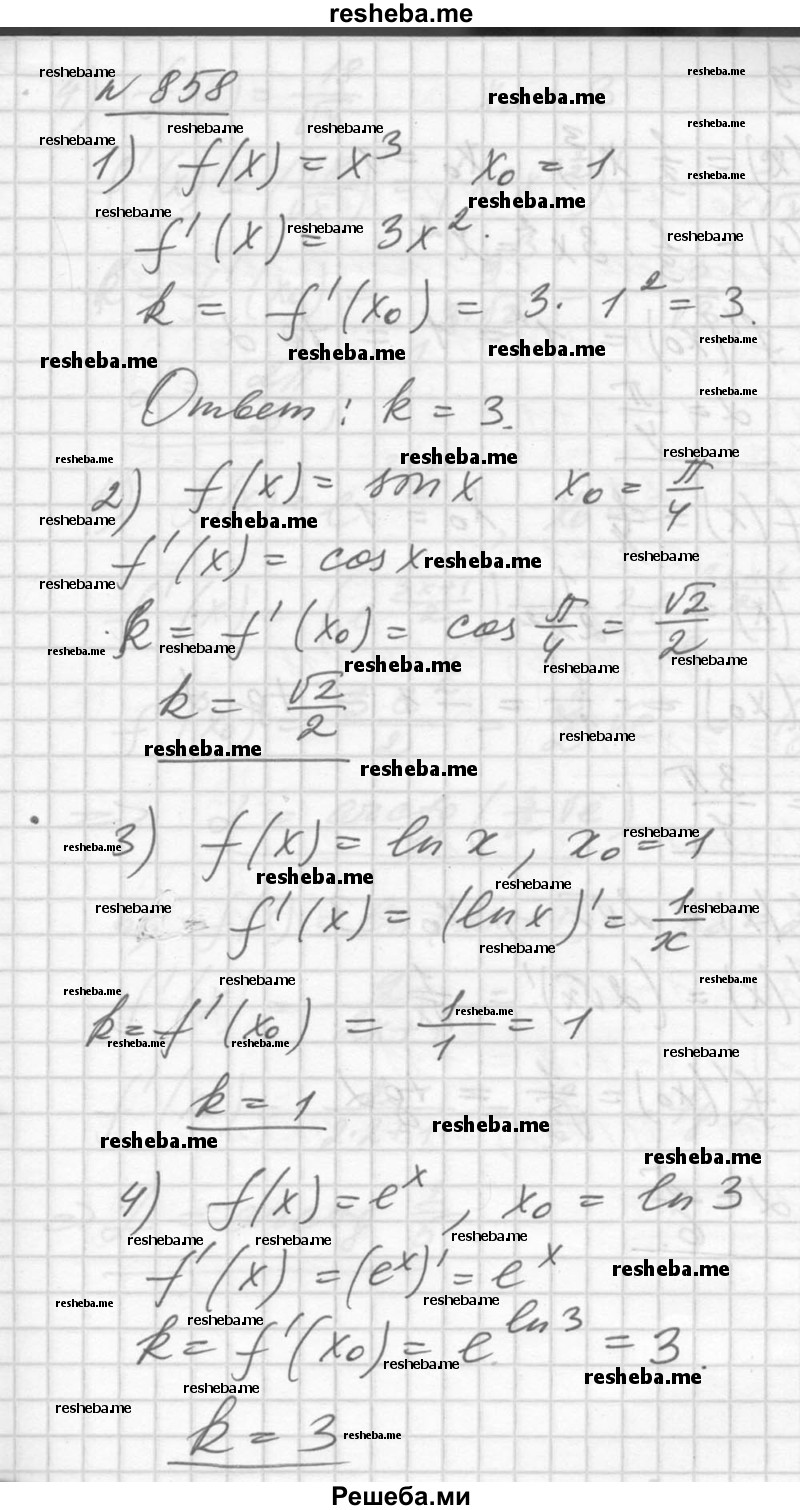 resheba.me
№ 858
1) f(x) = x³ x₀ = 1
f'(x) = 3x².
k = f'(x₀) = 3 · 1² = 3.
Ответ: k = 3.
2) f(x) = sin x x₀ = π/4
f'(x) = cos x
k = f'(x₀) = cos π/4 = √2/2
k = √2/2
3) f(x) = ln x, x₀ = 1
f'(x) = (ln x)' = 1/x
k = f'(x₀) = 1/1 = 1
k = 1
4) f(x) = eˣ, x₀ = ln 3
f'(x) = (eˣ)' = eˣ
k = f'(x₀) = e^(ln 3) = 3.
k = 3
Решеба.ми